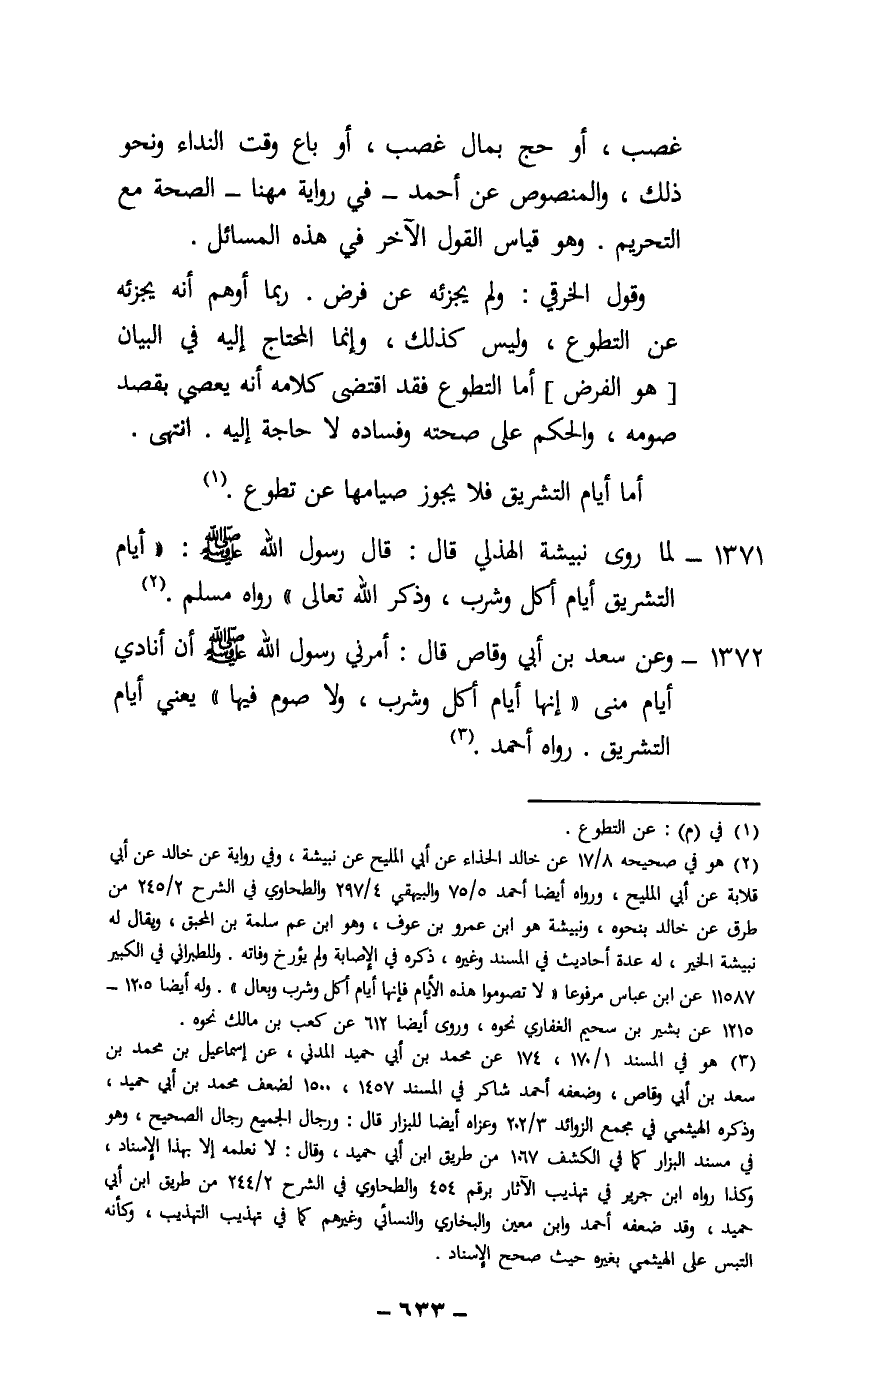 غصب ، أو حج بمال غصب ، أو باع وقت النداء ونحو
ذلك ، والمنصوص عن أحمد – في رواية مهنا – الصحة مع
التحريم . وهو قياس القول الآخر في هذه المسائل .
وقول الخرقي : ولم يجزئه عن فرض . ربما أوهم أنه يجزئه
عن التطوع ، وليس كذلك ، وإنما المحتاج إليه في البيان
[ هو الفرض ] أما التطوع فقد اقتضى كلامه أنه يعصي بقصد
صومه ، والحكم على صحته وفساده لا حاجة إليه . انتهى .
أما أيام التشريق فلا يجوز صيامها عن تطوع .(١)
١٣٧١ – لما روى نبيشة الهذلي قال : قال رسول الله ﷺ : « أيام
التشريق أيام أكل وشرب ، وذكر الله تعالى » رواه مسلم .(٢)
١٣٧٢ – وعن سعد بن أبي وقاص قال : أمرني رسول الله ﷺ أن أنادي
أيام منى « إنها أيام أكل وشرب ، ولا صوم فيها » يعني أيام
التشريق . رواه أحمد .(٣)
(١) في (م) : عن التطوع .
(٢) هو في صحيحه ١٧/٨ عن خالد الحذاء عن أبي المليح عن نبيشة ، وفي رواية عن خالد عن أبي
قلابة عن أبي المليح ، ورواه أيضا أحمد ٧٥/٥ والبيهقي ٢٩٧/٤ والطحاوي في الشرح ٢٤٥/٢ من
طرق عن خالد بنحوه ، ونبيشة هو ابن عمرو بن عوف ، وهو ابن عم سلمة بن المحبق ، ويقال له
نبيشة الخير ، له عدة أحاديث في المسند وغيره ، ذكره في الإصابة ولم يؤرخ وفاته . وللطبراني في الكبير
١١٥٨٧ عن ابن عباس مرفوعا « لا تصوموا هذه الأيام فإنها أيام أكل وشرب وبعال » . وله أيضا ١٢٠٥ –
١٢١٥ عن بشير بن سحيم الغفاري نحوه ، وروى أيضا ٦١٢ عن كعب بن مالك نحوه .
(٣) هو في المسند ١٧٠/١ ، ١٧٤ عن محمد بن أبي حميد المدني ، عن إسماعيل بن محمد بن
سعد بن أبي وقاص ، وضعفه أحمد شاكر في المسند ١٤٥٧ ، ١٥٠٠ لضعف محمد بن أبي حميد ،
وذكره الهيثمي في مجمع الزوائد ٢٠٢/٣ وعزاه أيضا للبزار قال : ورجال الجميع رجال الصحيح ، وهو
في مسند البزار كما في الكشف ١٠٦٧ من طريق ابن أبي حميد ، وقال : لا نعلمه إلا بهذا الإسناد ،
وكذا رواه ابن جرير في تهذيب الآثار برقم ٤٥٤ والطحاوي في الشرح ٢٤٤/٢ من طريق ابن أبي
حميد ، وقد ضعفه أحمد وابن معين والبخاري والنسائي وغيرهم كما في تهذيب التهذيب ، وكأنه
التبس على الهيثمي بغيره حيث صحح الإسناد .
– ٦٣٣ –